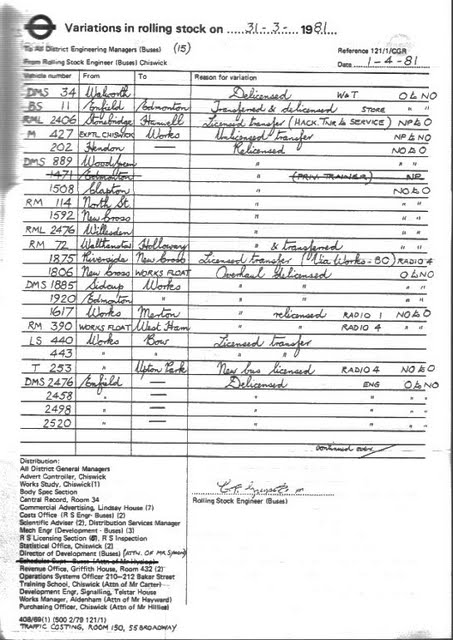 Variations in rolling stock on 31-3-1981
To All District Engineering Managers (Buses) (15)
Reference 121/1/CGR
From Rolling Stock Engineer (Buses) Chiswick
Date 1-4-81
Vehicle number From To Reason for variation
DMS 34 Walworth — Delicensed W&T O to NO
BS 11 Enfield Edmonton Transferred & delicensed STORE " "
RML 2406 Stonebridge Hanwell Licensed transfer (HACK. TNR to SERVICE) NP to O
M 427 EXPTL CHISWICK Works Unlicensed transfer NP to NO
202 Hendon — Relicensed NO to O
DMS 889 Wood Green " " "
1471 Edmonton " (PRIV. TRAINER) NP
1508 Clapton " NO to O
RM 114 North St. " " "
1592 New Cross " " "
RML 2476 Willesden " " "
RM 72 Walthamstow Holloway " & transferred " "
1875 Riverside New Cross Licensed transfer (Via Works - BC) RADIO 4
1806 New Cross WORKS FLOAT Overhaul delicensed O to NO
DMS 1885 Sidcup Works " "
1920 Edmonton " " "
1617 Works Merton " relicensed RADIO 1 NO to O
RM 390 WORKS FLOAT West Ham " " RADIO 4 " "
LS 440 Works Bow Licensed transfer
443 " " " "
T 253 " Upton Park New bus licensed RADIO 4 NO to O
DMS 2476 Enfield — Delicensed ENG O to NO
2458 " — " " "
2498 " — " " "
2520 " — " " "
continued over
Distribution:
All District General Managers
Advert Controller, Chiswick
Works Study, Chiswick(1)
Body Spec Section
Central Record, Room 34
Commercial Advertising, Lindsay House (7)
Costs Office (R S Engr Buses) (2)
Rolling Stock Engineer (Buses)
Scientific Adviser (2), Distribution Services Manager
Mech Engr (Development - Buses) (3)
R S Licensing Section (6), R S Inspection
Statistical Office, Chiswick (2)
Director of Development (Buses) (ATTN. OF MR.
Schedules Supt - Buses (Attn of Mr
Revenue Office, Griffith House, Room 432 (2)
Operations Systems Officer 210-212 Baker Street
Training School, Chiswick (Attn of Mr Carter)
Development Engr, Signalling, Telstar House
Works Manager, Aldenham (Attn of Mr Hayward)
Purchasing Officer, Chiswick (Attn of Mr Hillies)
408/69(1) (500 2/79 121/1)
TRAFFIC COSTING, ROOM 150, 55 BROADWAY